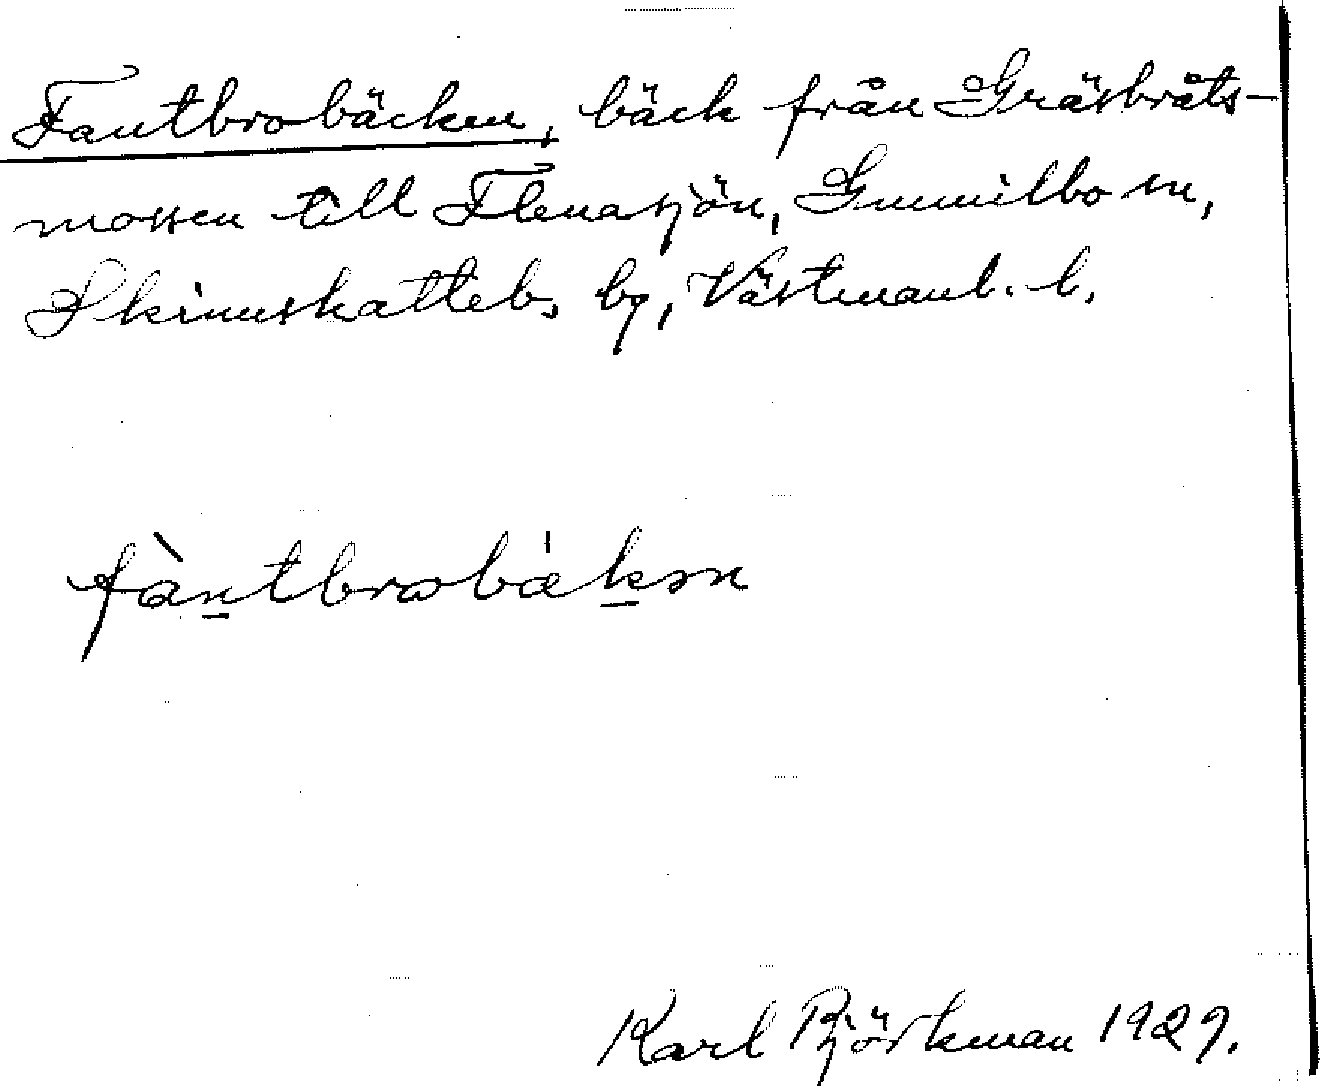 Fantbrobäcken, bäck från Gräsbråts-
mossen till Flenasjön, Gunnilbo sn,
Skinnskatteb. bg, Västmanl. l.
fàntbrobä́kən
Karl Björkman 1929.